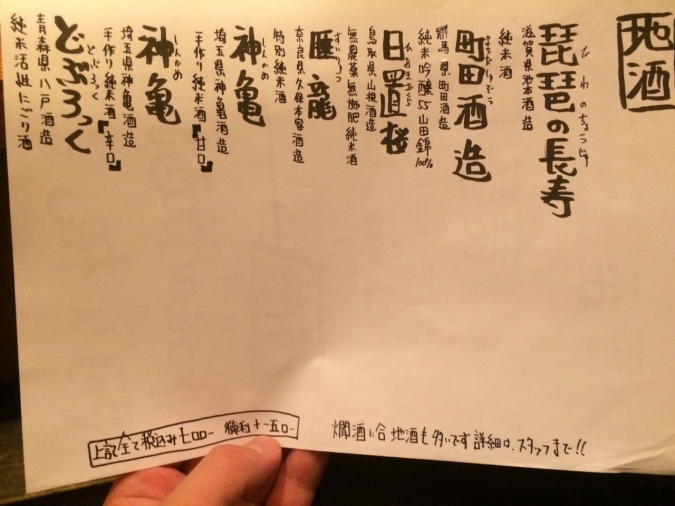 地酒
琵琶の長寿
びわのちょうじゅ
滋賀県池本酒造
純米酒
町田酒造
まちだしゅぞう
群馬県町田酒造
純米吟醸55山田錦100%
日置桜
ひおきざくら
鳥取県山根酒造
無農薬無施肥純米酒
睡龍
すいりゅう
奈良県久保本家酒造
特別純米酒
神亀
しんかめ
埼玉県神亀酒造
手作り純米酒『甘口』
神亀
しんかめ
埼玉県神亀酒造
手作り純米酒『辛口』
どぶろっく
どぶろっく
青森県八戸酒造
純米活性にごり酒
燗酒に合う地酒も多いです詳細は、スタッフまで!!
上記全て税込み七〇〇- 徳利+一五〇-